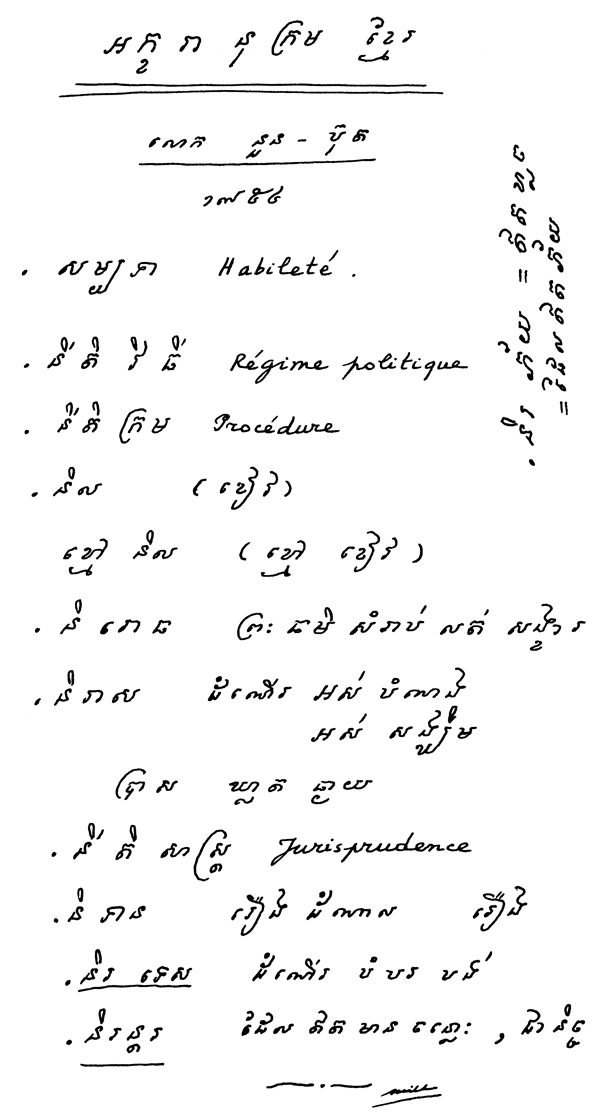 អក្ខរានុក្រម ខ្មែរ
លោក នួន - ប៊ុត
១៧៥៤
. សម្បទា Habileté .
. នីតិវិធី Régime politique
. នីតិក្រម Procédure
. និល (ខៀវ)
ខ្មៅ និល (ខ្មៅ ខៀវ)
. និរោធ ព្រះធម៌ សំរាប់ លត់ សង្ខារ
. និរាស ដំណើរ អស់ បំណង
អស់ សង្ឃឹម
ប្រាស ឃ្លាត ឆ្ងាយ
. នីតិសាស្ត្រ Jurisprudence
. និទាន រឿង ដំណាល រឿង
. និរទេស ដំណើរ បំបរបង់
. និរន្តរ ដែល ឥត មាន ចន្លោះ , ជានិច្ច
. និរភ័យ = ឥតខ្លាច
= ដែលឥតភ័យ